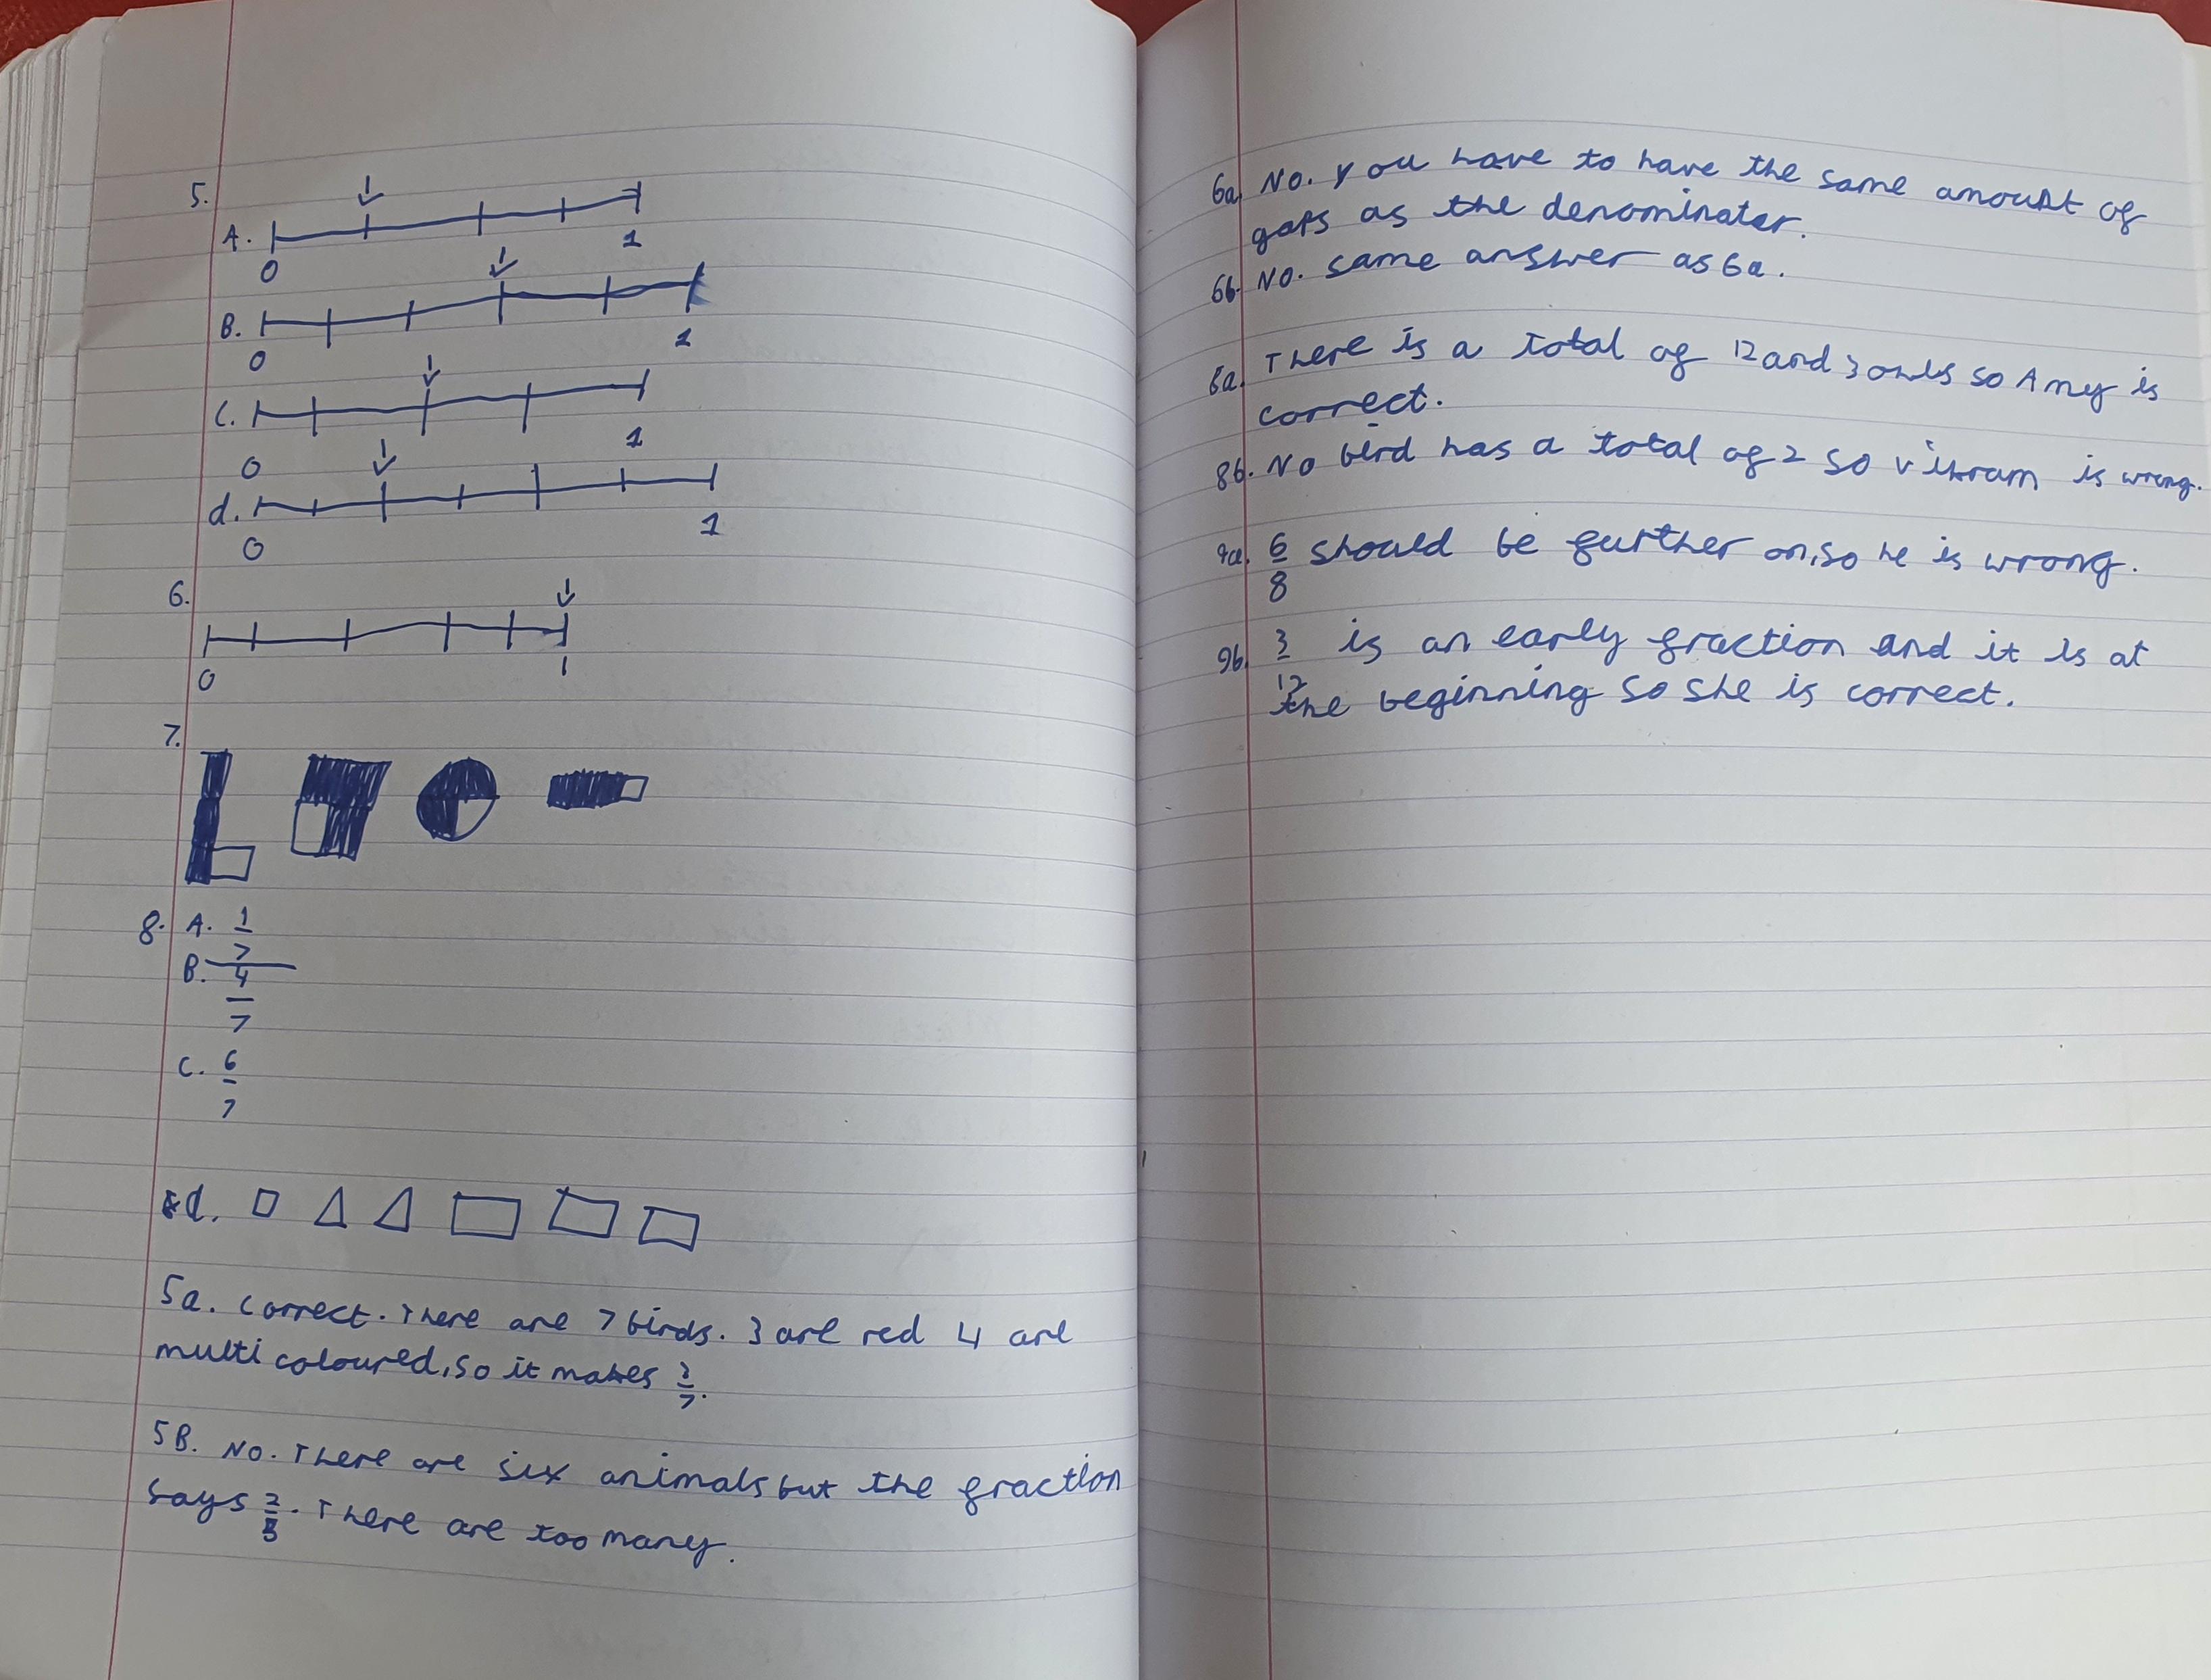 5.
A. 0 1
B. 0 1
C. 0 1
d. 0 1
6.
0 1
7.
8. A. 1/7
B. 4/7
C. 6/7
d.
5a. Correct. There are 7 birds. 3 are red 4 are
multi coloured, so it makes 3/7.
5B. No. There are six animals but the fraction
says 2/5. There are too many.
6a. No. You have to have the same amount of
gaps as the denominater.
6b. No. same answer as 6a.
8a. There is a total of 12 and 3 owls so Amy is
correct.
8b. No bird has a total of 2 so vikram is wrong.
9a. 6/8 should be further on, so he is wrong.
9b. 3/12 is an early fraction and it is at
the beginning so she is correct.